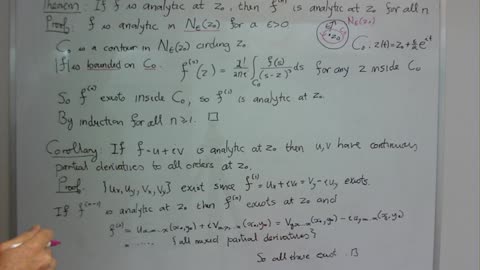 Theorem: If f is analytic at z₀, then f⁽ⁿ⁾ is analytic at z₀ for all n
Proof: f is analytic in N_ε(z₀) for a ε>0
N_ε(z₀)
C₀ is a contour in N_ε(z₀) circling z₀
C₀: z(t)=z₀+ε/2 e^{it}
|f| is bounded on C₀. f⁽²⁾(z) = 2!/2πi ∫_{C₀} f(s)/(s-z)³ ds for any z inside C₀
So f⁽²⁾ exists inside C₀, so f⁽¹⁾ is analytic at z₀
By induction for all n≥1. □
Corollary: If f=u+iv is analytic at z₀ then u,v have continuous
partial derivatives to all orders at z₀.
Proof: {u_x, u_y, v_x, v_y} exist since f⁽¹⁾=u_x+iv_x=v_y-iu_y exists.
If f⁽ⁿ⁻¹⁾ is analytic at z₀ then f⁽ⁿ⁾ exists at z₀ and
f⁽ⁿ⁾ = u_{x...x}(x₀,y₀)+iv_{x...x}(x₀,y₀) = v_{yx...x}(x₀,y₀)-iu_{yx...x}(x₀,y₀)
= ...... {all mixed partial derivatives}
So all these exist. □